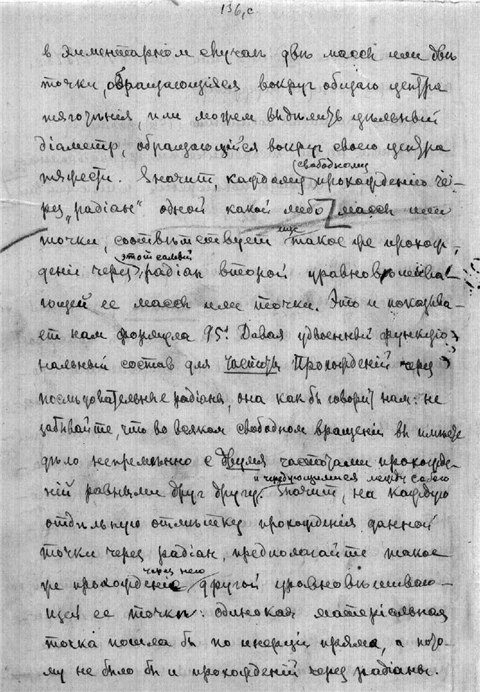 136,с
в элементарном случае две массы или две
точки, обращающіяся вокруг общаго центра
тяготѣнія, или можем выдѣлить цѣльный
діаметр, обращающійся вокруг своего центра
тяжести. Значит, каждому прохожденію че-
свободному
рез „радіан“ одной какой либо массы или
точки, соотвѣтствует такое же прохож-
еще
деніе через радіан второй уравновѣшива-
этот самый
ющей ее массы или точки. Это и показыва-
ет нам формула 95. Давая удвоенный функціо-
нальный состав для частоты прохожденій через
послѣдовательные радіаны, она как бы говорит нам: не
забывайте, что во всяком свободном вращеніи вы имѣете
дѣло непремѣнно с двумя частотами прохожде-
ній равными друг другу. Значит, на каждую
и чередующимися между собою
отдѣльную отмѣтку прохожденія данной
точки через радіан, предполагайте такое
же прохожденіе другой уравновѣшиваю-
через него
щей ее точки: одинокая матеріальная
точка пошла бы по инерціи прямо, а пото-
му не было бы и прохожденій через радіаны.